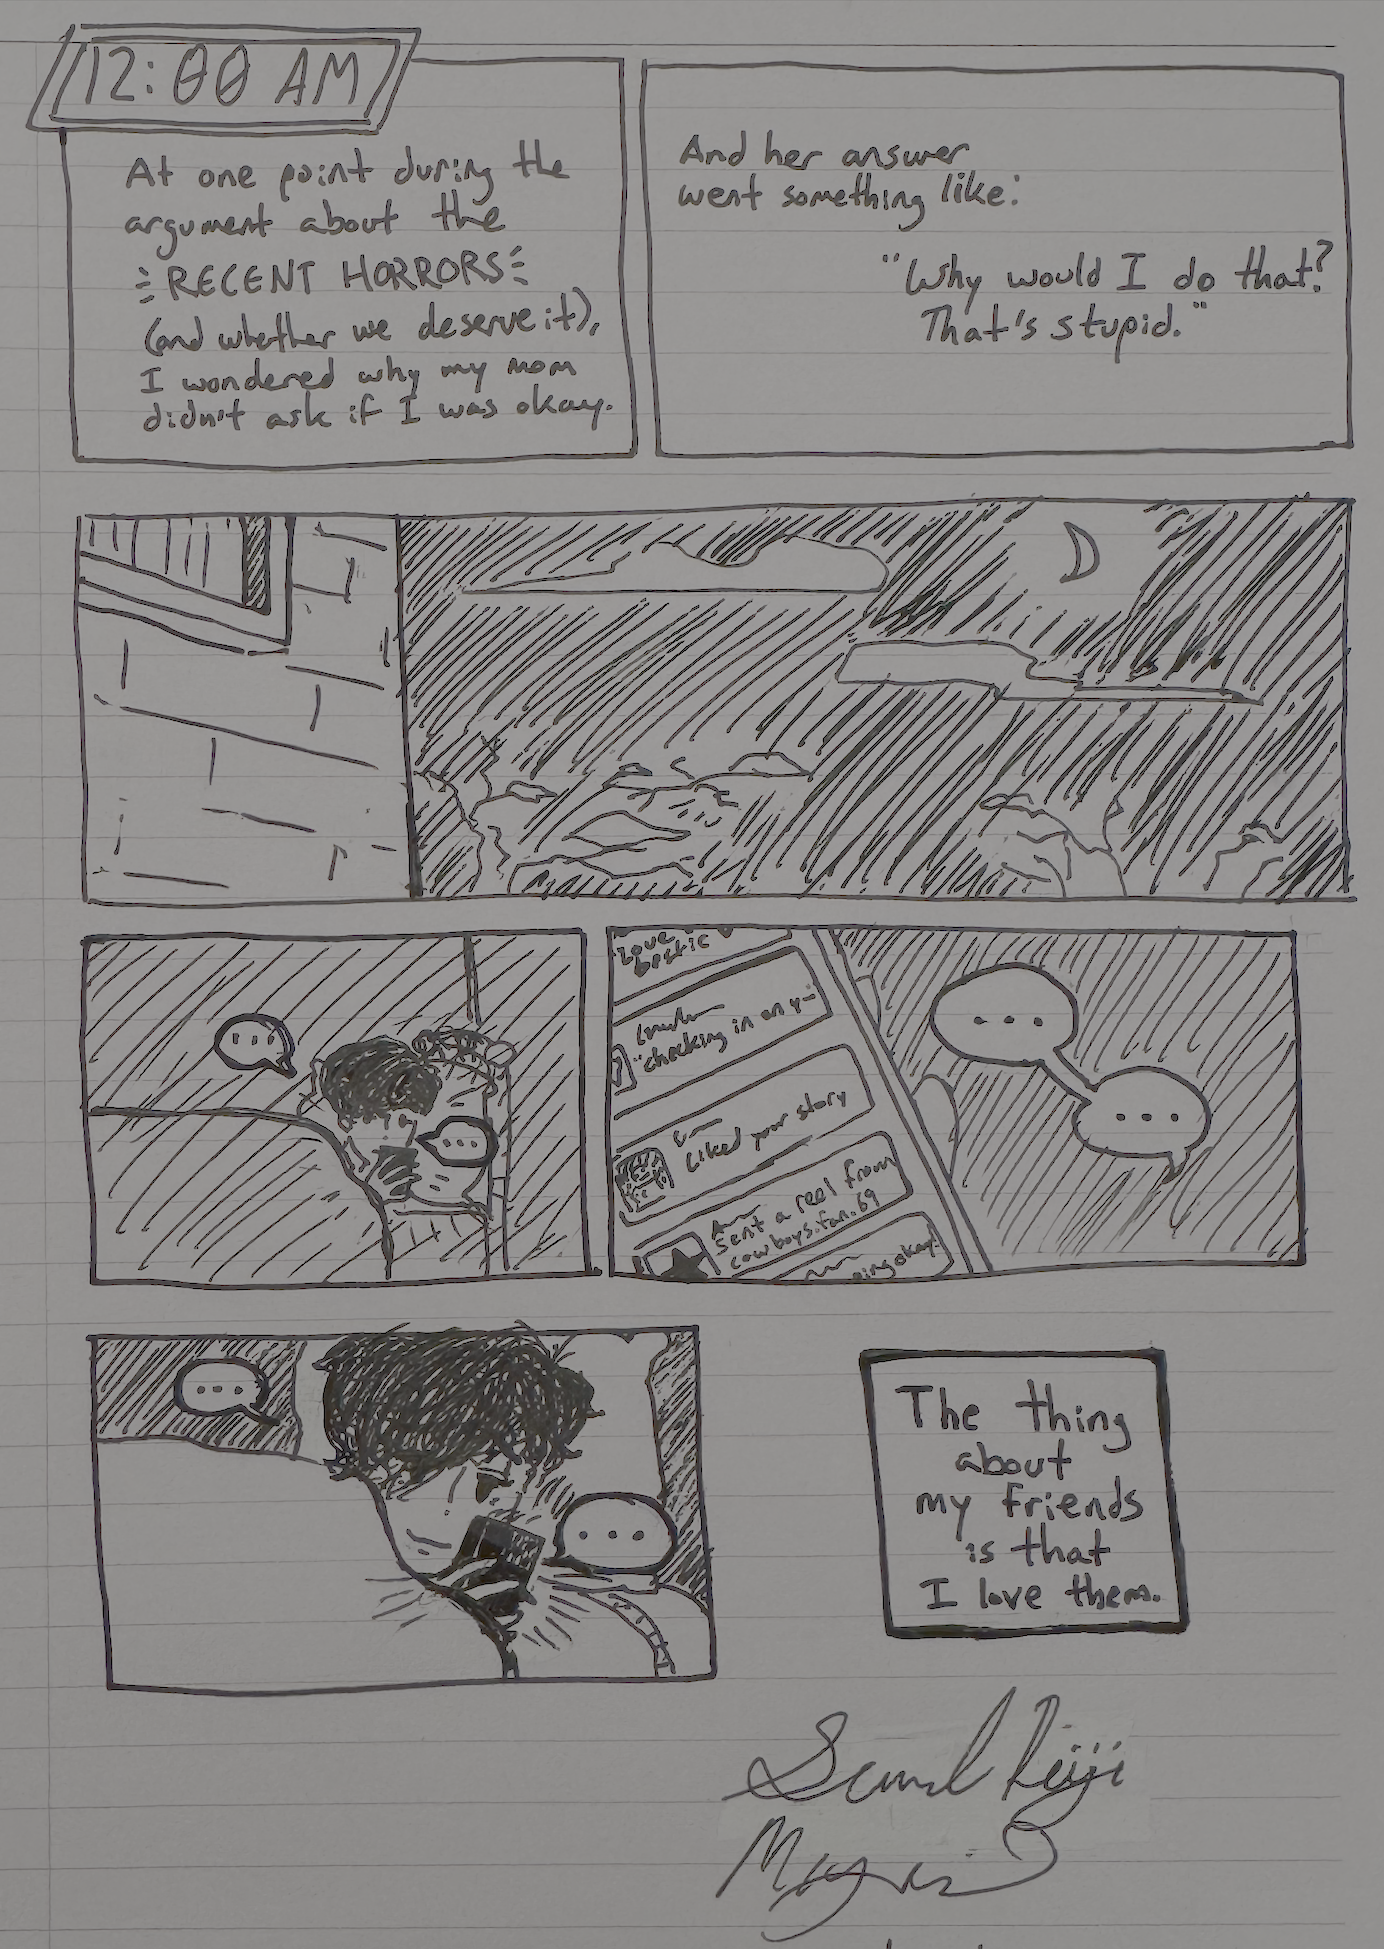 12:00 AM
At one point during the
argument about the
RECENT HORRORS
(and whether we deserve it),
I wondered why my mom
didn't ask if I was okay.
And her answer
went something like:
"Why would I do that?
That's stupid."
...
...
Love
bestie
"checking in on y-
Liked your story
Sent a reel from
cowboys.fan.69
okay!
...
...
...
...
The thing
about
my friends
is that
I love them.